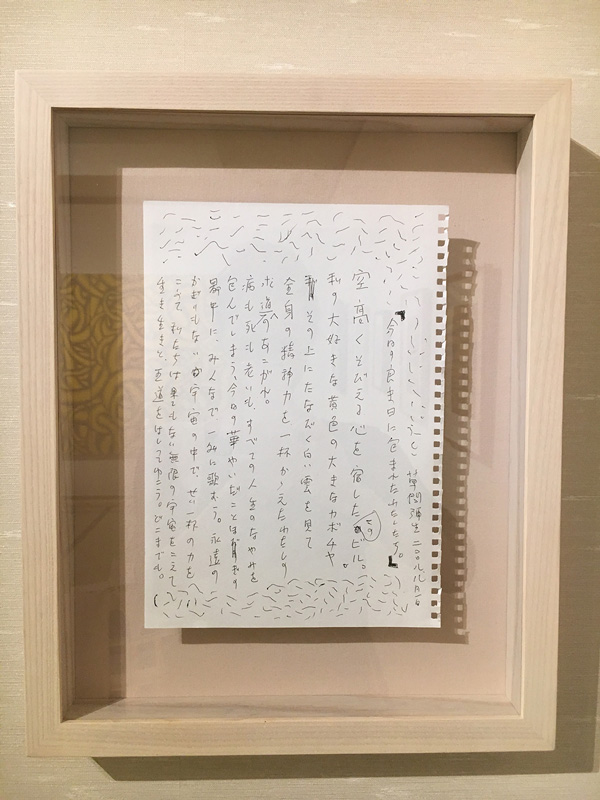 草間彌生
「今日の良き日に包まれたわたしたち。」
空高くそびえる心を宿したビル。
私の大好きな黄色の大きなカボチャ。
その上にたなびく白い雲を見て
全身の精神力を一杯かゝえたわたしの
求道へのあこがれ。
病も死も老いも、すべての人生のなやみを
包んでしまう今日の華やいだことほぎの
最中に、みんなで一緒に歌おう。永遠の
かぎりもない宇宙の中で、せい一杯の力を
こめて、私たちは果てもない無限の宇宙をこえて
生き生きと、道をはしってゆこう。どこまでも。